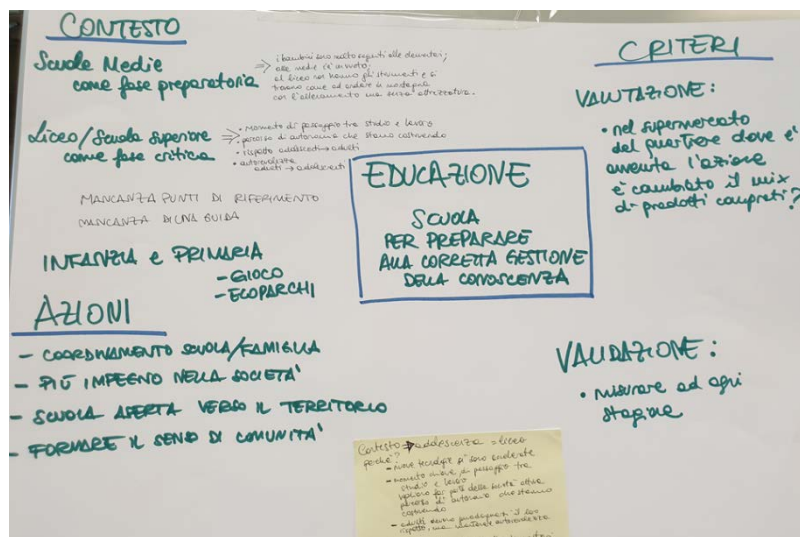 CONTESTO
Scuole Medie
come fase preparatoria
⇒ i bambini sono molto seguiti alle elementari;
alle medie c'è un vuoto;
al liceo non hanno gli strumenti e si
trovano come ad andare in montagna
con l'allenamento ma senza attrezzatura.
Liceo/Scuola Superiore
come fase critica
⇒ • momento di passaggio tra studio e lavoro
• percorso di autonomia che stanno costruendo
• rispetto adolescenti → adulti
• autorevolezza
adulti → adolescenti
MANCANZA PUNTI DI RIFERIMENTO
MANCANZA DI UNA GUIDA
INFANZIA e PRIMARIA
- GIOCO
- ECOPARCHI
AZIONI
- COORDINAMENTO SCUOLA/FAMIGLIA
- PIÙ IMPEGNO NELLA SOCIETA'
- SCUOLA APERTA VERSO IL TERRITORIO
- FORMARE IL SENSO DI COMUNITA'
EDUCAZIONE
SCUOLA
PER PREPARARE
ALLA CORRETTA GESTIONE
DELLA CONOSCENZA
CRITERI
VALUTAZIONE:
• nel supermercato
del quartiere dove è
avvenuta l'azione
è cambiato il mix
di prodotti comprati?
VALIDAZIONE:
• misurare ad ogni
stagione
Contesto → adolescenza = liceo
perché?
- nuove tecnologie
- momento di passaggio tra
studio e lavoro
vogliono far parte della società attiva
percorso di autonomia che stanno
costruendo
- adulti devono guadagnarsi il loro
rispetto, una autorevolezza